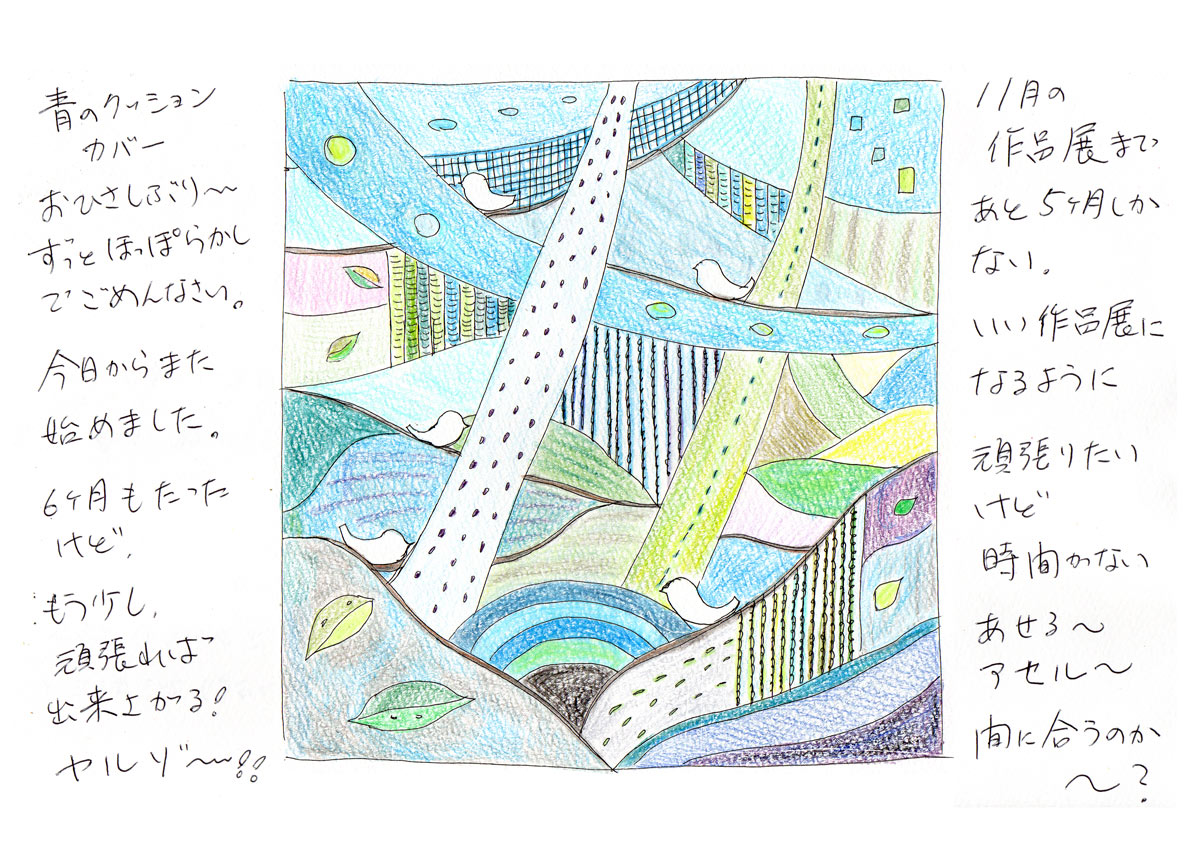 青のクッション
カバー
おひさしぶり〜
ずっとほっぽらかし
でごめんなさい。
今日からまた
始めました。
6ヶ月もたった
けど、
もう少し、
頑張れば
出来上がる!
ヤルゾ〜!!
11月の
作品展まで
あと5ヶ月しか
ない。
いい作品展に
なるように
頑張りたい
けど
時間がない
あせる〜
アセル〜
間に合うのか
〜?